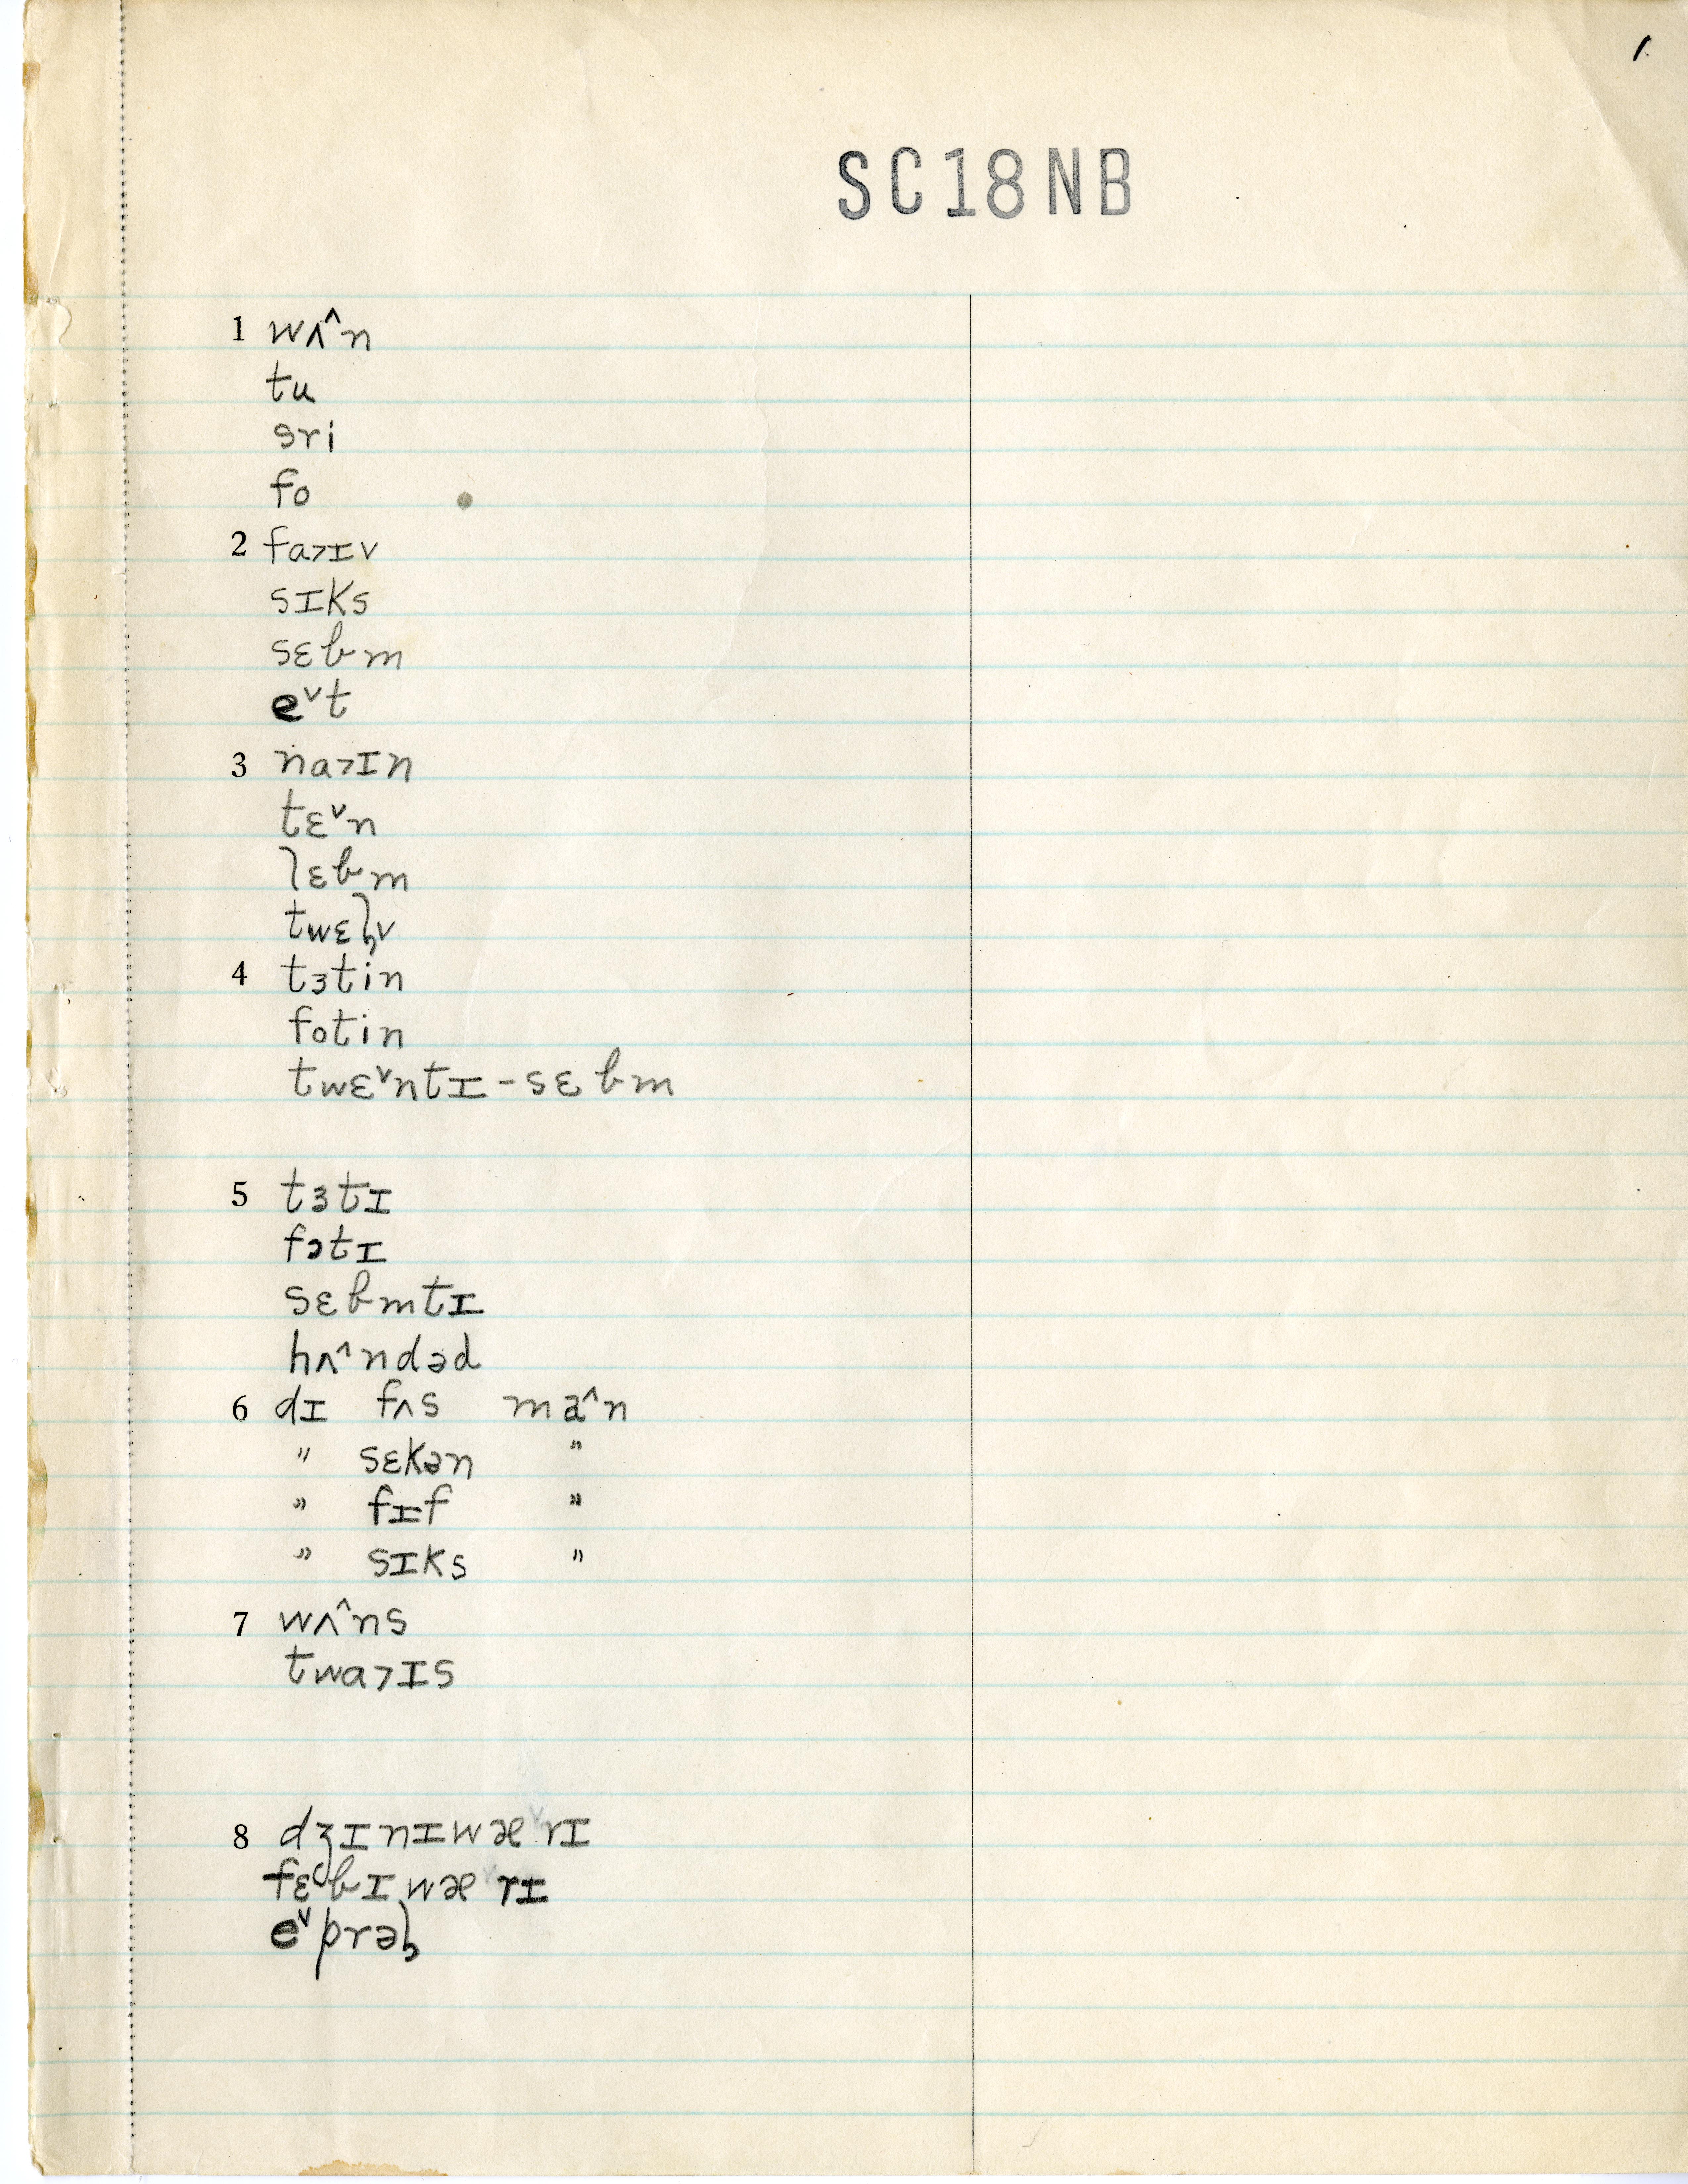 1.
SC18NB
1 wʌ^n
tu
sri
fo
2 fa>ɪv
sɪks
sɛbm
eᵛt
3 na>ɪn
tɛᵛn
lɛbm
twɛl̥v
4 tɜtin
fotin
twɛᵛntɪ-sɛbm
5 tɜtɪ
fɔtɪ
sɛbmtɪ
hʌ^ndəd
6 dɪ fʌs ma^n
" sɛkən "
" fɪf "
" sɪks "
7 wʌ^ns
twa>ɪs
8 dʒɪnɪwæᵛrɪ
fɛbɪwæᵛrɪ
eᵛprəl̥